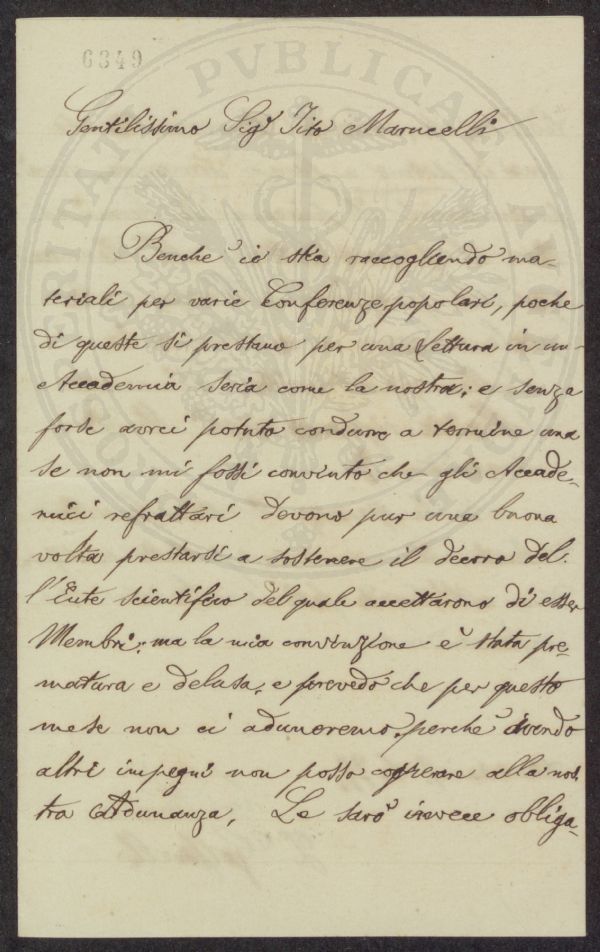 6349
Gentilissimo Sig.r Tito Marucelli
Benchè io stia raccogliendo ma-
teriali per varie Conferenze popolari, poche
di queste si prestano per una Lettura in un-
Accademia seria come la nostra; e senza
forse avrei potuto condurre a termine una
se non mi fossi convinto che gli Accade-
mici refrattari devono pur una buona
volta prestarsi a sostenere il decoro del-
l'Ente scientifico del quale accettarono di esser
Membri; ma la mia convinzione è stata pre-
matura e delusa, e prevedo che per questo
mese non ci aduneremo, perchè avendo
altri impegni non posso cooperare alla nos-
tra Adunanza. Le sarò invece obliga-